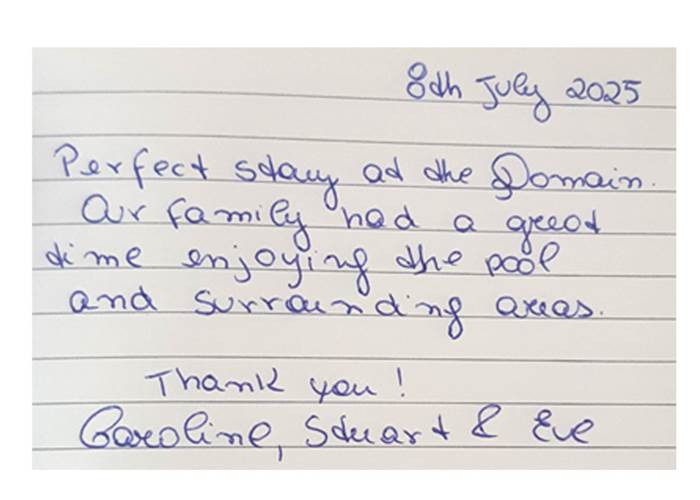 8th July 2025
Perfect stay at the Domain.
Our family had a great
time enjoying the pool
and surrounding areas.
Thank you!
Caroline, Stuart & Eve